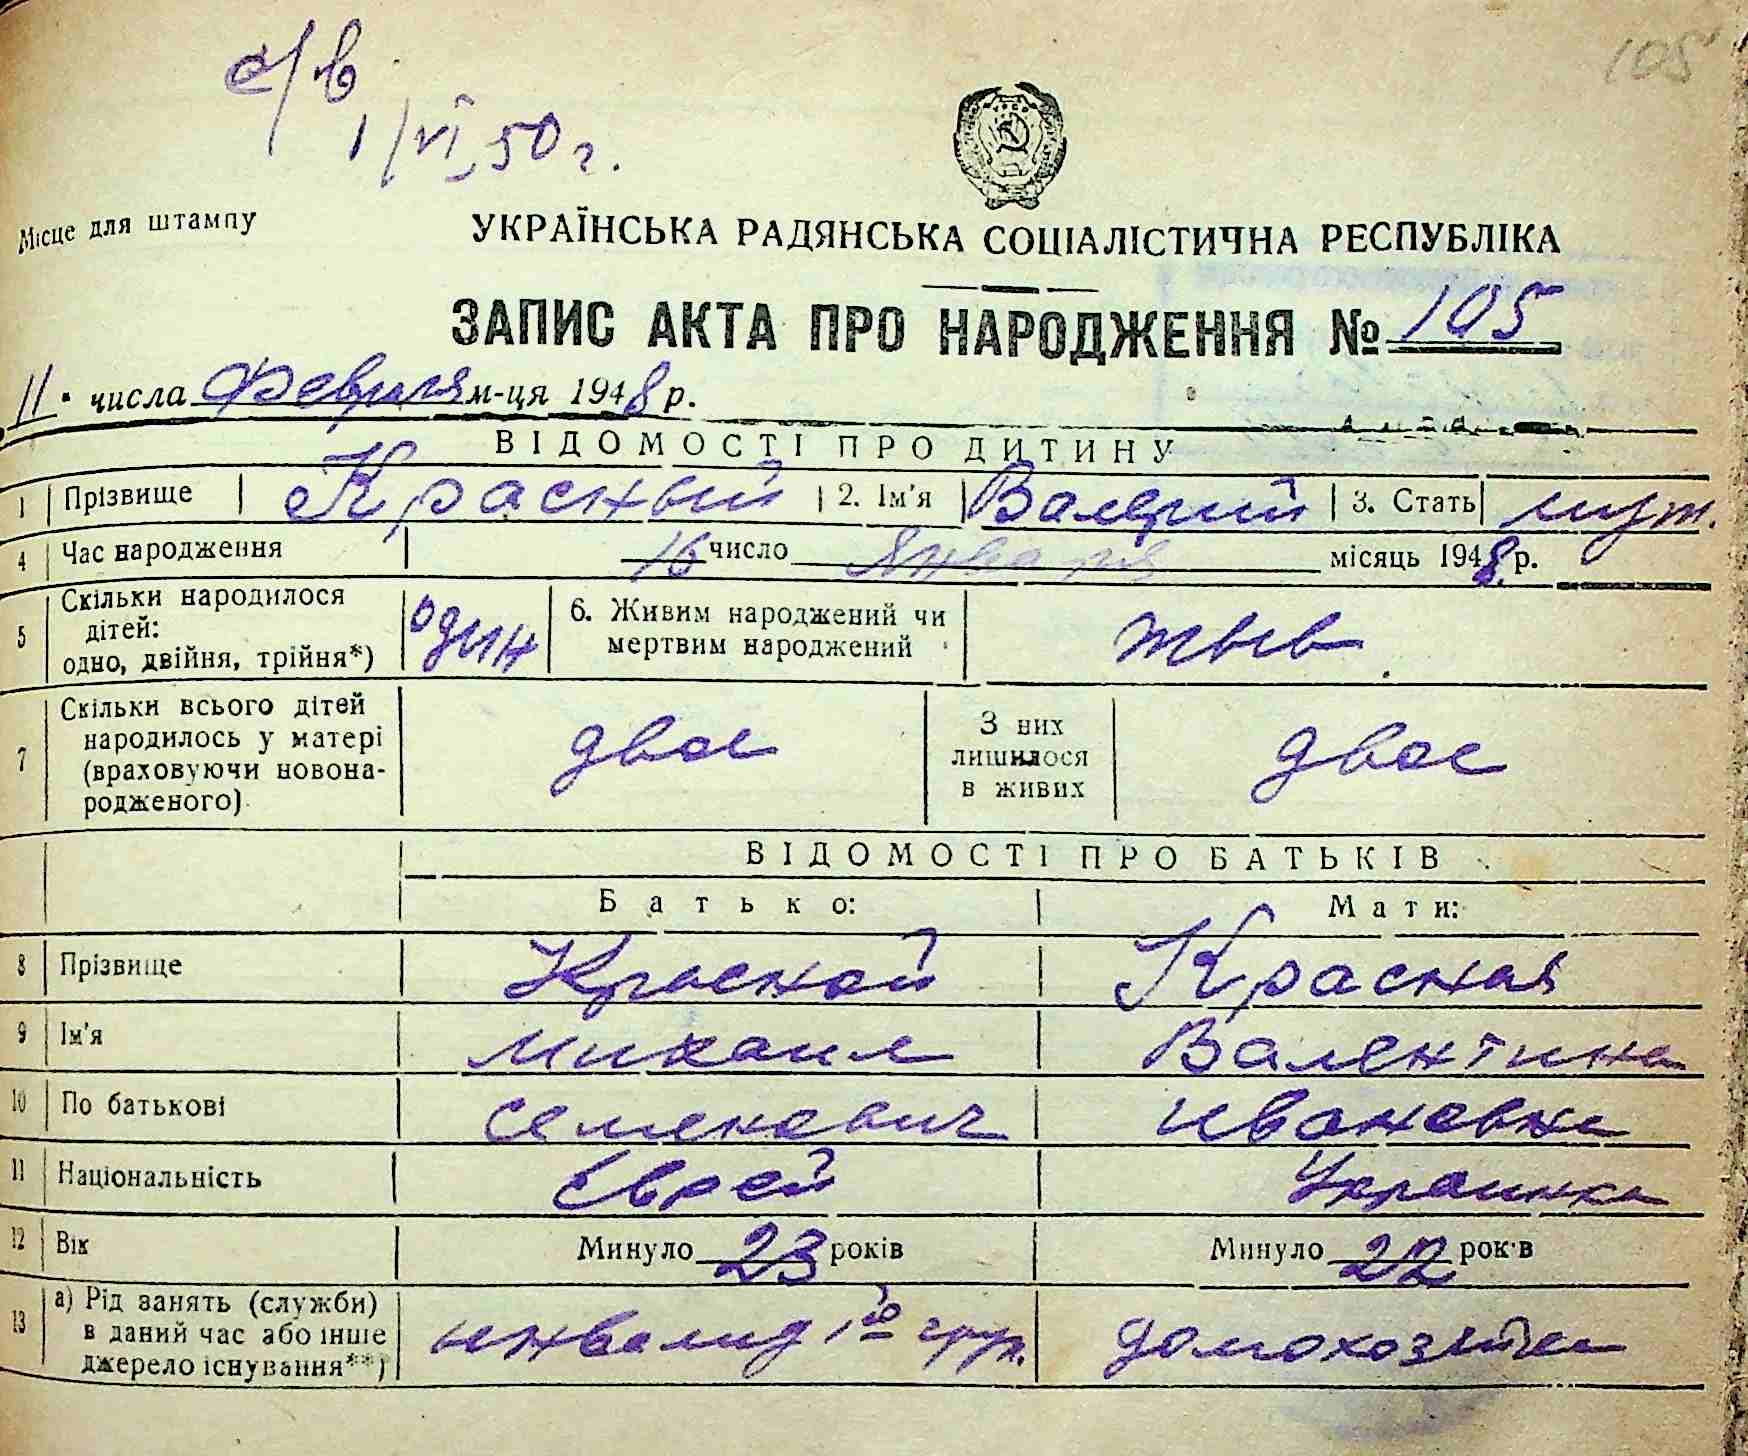 с/в
1/VI 50 г.
105
Місце для штампу
УКРАЇНСЬКА РАДЯНСЬКА СОЦІАЛІСТИЧНА РЕСПУБЛІКА
ЗАПИС АКТА ПРО НАРОДЖЕННЯ № 105
11 числа Февраля м-ця 1948 р.
ВІДОМОСТІ ПРО ДИТИНУ
1 Прізвище Красный 2. Ім'я Валерий 3. Стать муж.
4 Час народження 16 число Января місяць 1948 р.
5 Скільки народилося дітей: одно, двійня, трійня*) один 6. Живим народжений чи мертвим народжений жыв
7 Скільки всього дітей народилось у матері (враховуючи новонародженого) двое З них лишилося в живих двое
ВІДОМОСТІ ПРО БАТЬКІВ
Батько: Мати:
8 Прізвище Красной Красная
9 Ім'я Михаил Валентина
10 По батькові Семенович Ивановна
11 Національність Еврей Украинка
12 Вік Минуло 23 років Минуло 22 років
13 а) Рід занять (служби) в даний час або інше джерело існування**) инвалид 1й груп. домохозяйка